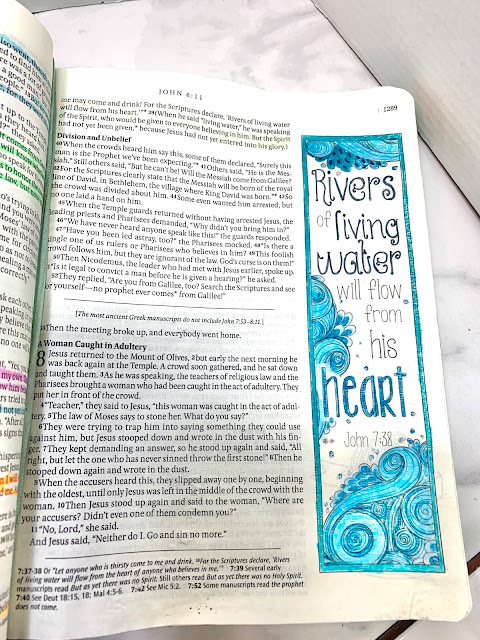 JOHN 8:11
1289
me may come and drink! For the Scriptures declare, 'Rivers of living water
will flow from his heart.'"* 39(When he said "living water," he was speaking
of the Spirit, who would be given to everyone believing in him. But the Spirit
had not yet been given,* because Jesus had not yet entered into his glory.)
Division and Unbelief
40When the crowds heard him say this, some of them declared, "Surely this
man is the Prophet we've been expecting."* 41Others said, "He is the Mes-
siah." Still others said, "But he can't be! Will the Messiah come from Galilee?
42For the Scriptures clearly state that the Messiah will be born of the royal
line of David, in Bethlehem, the village where King David was born."* 43So
the crowd was divided about him. 44Some even wanted him arrested, but
no one laid a hand on him.
45When the Temple guards returned without having arrested Jesus, the
leading priests and Pharisees demanded, "Why didn't you bring him in?"
46"We have never heard anyone speak like this!" the guards responded.
47"Have you been led astray, too?" the Pharisees mocked. 48"Is there a
single one of us rulers or Pharisees who believes in him? 49This foolish
crowd follows him, but they are ignorant of the law. God's curse is on them!"
50Then Nicodemus, the leader who had met with Jesus earlier, spoke up.
51"Is it legal to convict a man before he is given a hearing?" he asked.
52They replied, "Are you from Galilee, too? Search the Scriptures and see
for yourself—no prophet ever comes* from Galilee!"
[The most ancient Greek manuscripts do not include John 7:53–8:11.]
53Then the meeting broke up, and everybody went home.
A Woman Caught in Adultery
8 Jesus returned to the Mount of Olives, 2but early the next morning he
was back again at the Temple. A crowd soon gathered, and he sat down
and taught them. 3As he was speaking, the teachers of religious law and the
Pharisees brought a woman who had been caught in the act of adultery. They
put her in front of the crowd.
4"Teacher," they said to Jesus, "this woman was caught in the act of adul-
tery. 5The law of Moses says to stone her. What do you say?"
6They were trying to trap him into saying something they could use
against him, but Jesus stooped down and wrote in the dust with his fin-
ger. 7They kept demanding an answer, so he stood up again and said, "All
right, but let the one who has never sinned throw the first stone!" 8Then he
stooped down again and wrote in the dust.
9When the accusers heard this, they slipped away one by one, beginning
with the oldest, until only Jesus was left in the middle of the crowd with the
woman. 10Then Jesus stood up again and said to the woman, "Where are
your accusers? Didn't even one of them condemn you?"
11"No, Lord," she said.
And Jesus said, "Neither do I. Go and sin no more."
7:37-38 Or "Let anyone who is thirsty come to me and drink. 38For the Scriptures declare, 'Rivers
of living water will flow from the heart of anyone who believes in me.'" 7:39 Several early
manuscripts read But as yet there was no Spirit. Still others read But as yet there was no Holy Spirit.
7:40 See Deut 18:15, 18; Mal 4:5-6. 7:42 See Mic 5:2. 7:52 Some manuscripts read the prophet
does not come.
Rivers
of living
water
will flow
from
his
heart.
John 7:38